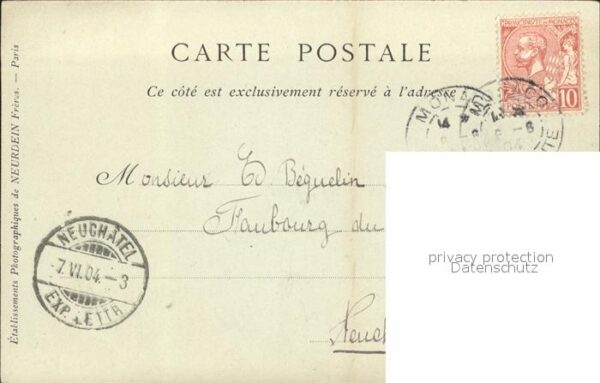 PRINCIPAUTÉ DE MONACO
10
CARTE POSTALE
Ce côté est exclusivement réservé à l'adre
MONACO
Monsieur Ed. Béguelin
Faubourg du
Neuch
NEUCHÂTEL
7.VI.04.-3
EXP. LETTR
privacy protection
Datenschutz
Établissements Photographiques de NEURDEIN Frères. — Paris